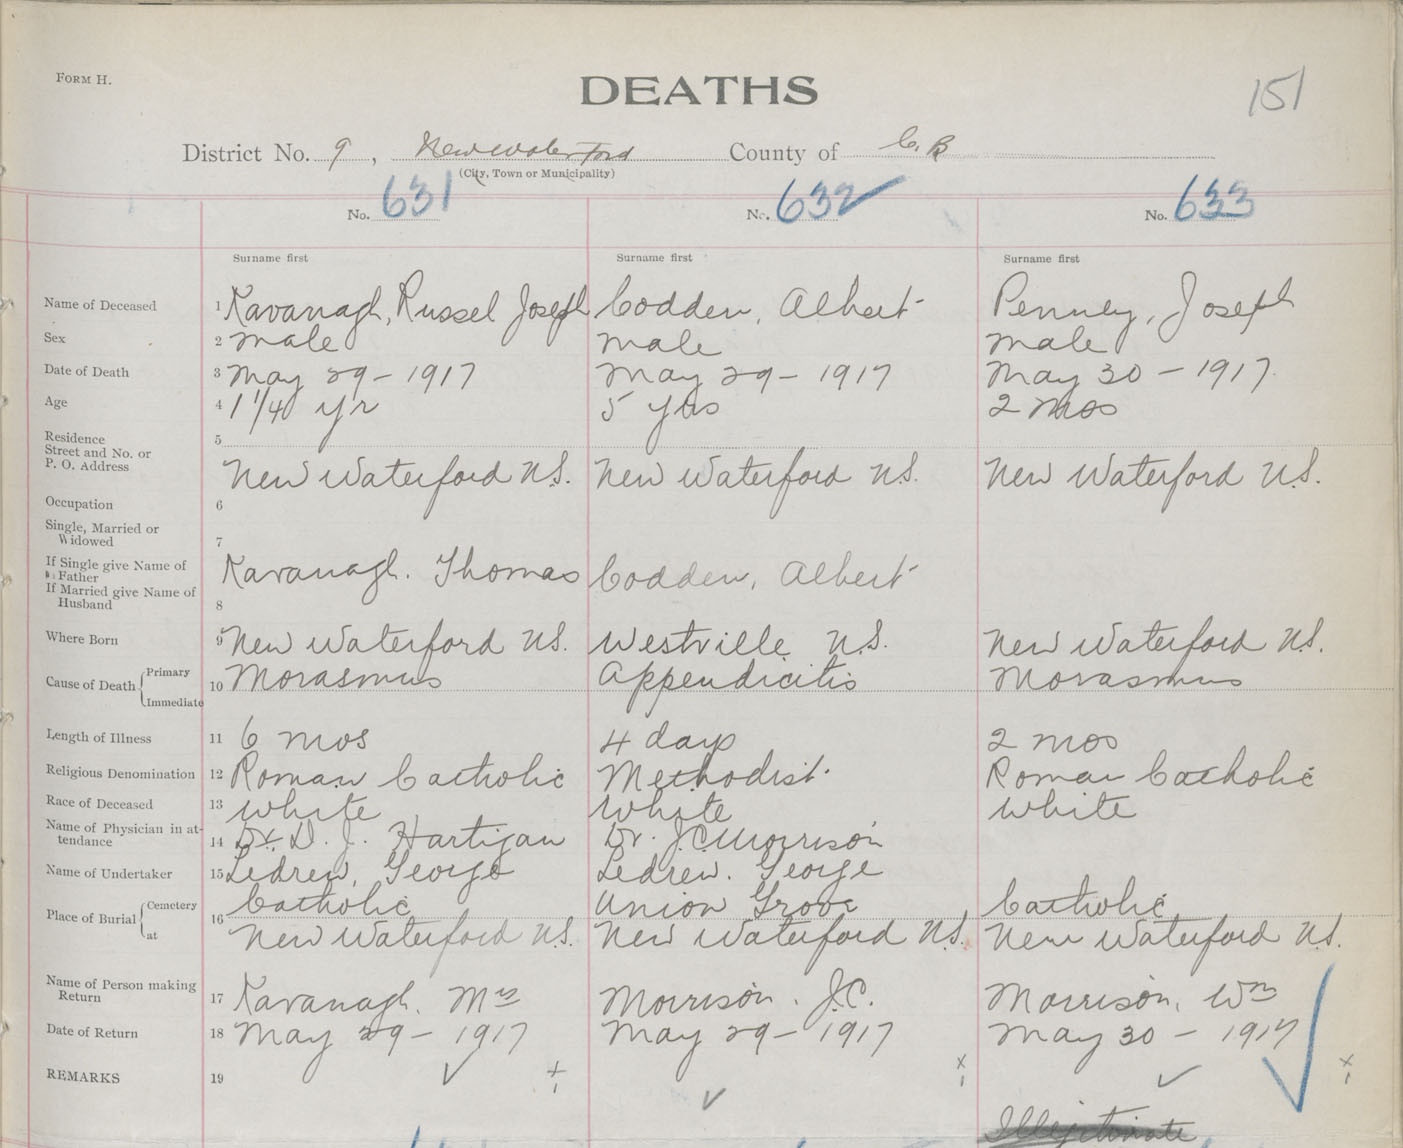 FORM H.
DEATHS
151
District No. 9, New Waterford County of C. B
(City, Town or Municipality)
No. 631 No. 632 No. 633
Surname first Surname first Surname first
Name of Deceased 1 Kavanagh, Russel Joseph Codden, Albert Penney, Joseph
Sex 2 male male male
Date of Death 3 May 29 - 1917 May 29 - 1917 May 30 - 1917
Age 4 1 1/4 yr 5 yrs 2 mos
Residence 5
Street and No. or
P. O. Address New Waterford N.S. New Waterford N.S. New Waterford N.S.
Occupation 6
Single, Married or
Widowed 7
If Single give Name of
Father Kavanagh. Thomas Codden, Albert
If Married give Name of
Husband 8
Where Born 9 New Waterford N.S. Westville N.S. New Waterford N.S.
Primary
Cause of Death 10 Morasmus Appendicitis Morasmus
Immediate
Length of Illness 11 6 mos 4 days 2 mos
Religious Denomination 12 Roman Catholic Methodist Roman Catholic
Race of Deceased 13 White White White
Name of Physician in at-
tendance 14 Dr. D. J. Hartigan Dr. J.C. Morrison
Name of Undertaker 15 Ledrew, George Ledrew. George
Cemetery Catholic Union Grove Catholic
Place of Burial 16
at New Waterford N.S. New Waterford N.S. New Waterford N.S.
Name of Person making
Return 17 Kavanagh, Mrs Morrison. J.C. Morrison, Wm
Date of Return 18 May 29 - 1917 May 29 - 1917 May 30 - 1917
REMARKS 19
Illegitimate